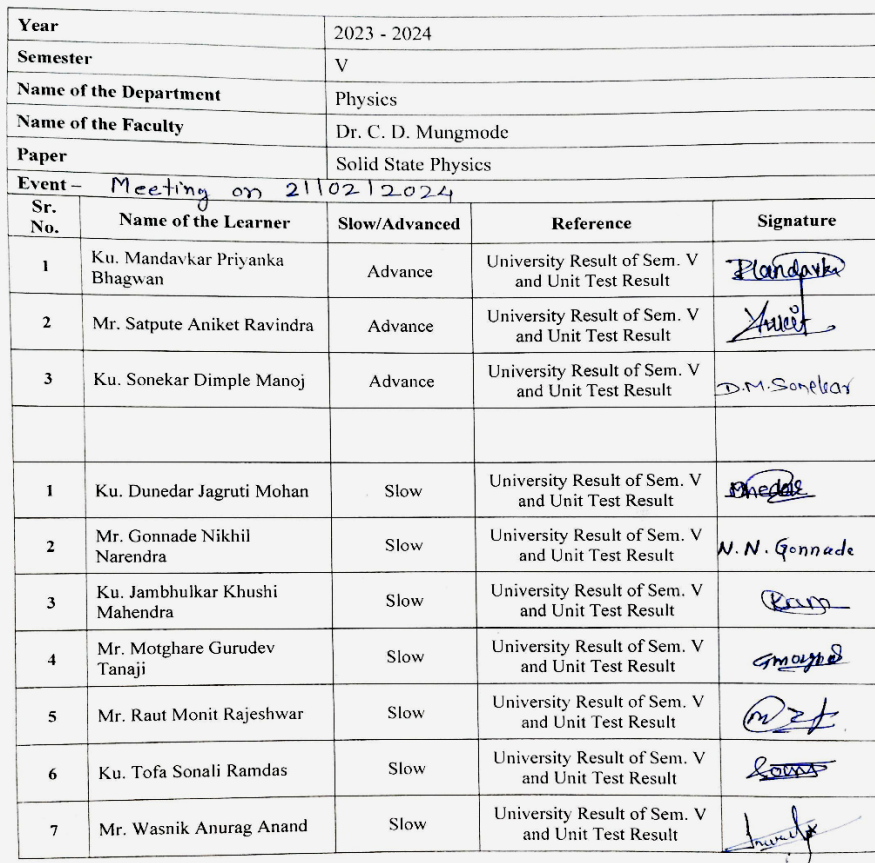 Year 2023 - 2024
Semester V
Name of the Department Physics
Name of the Faculty Dr. C. D. Mungmode
Paper Solid State Physics
Event – Meeting on 21|02|2024
Sr. No. Name of the Learner Slow/Advanced Reference Signature
1 Ku. Mandavkar Priyanka Bhagwan Advance University Result of Sem. V and Unit Test Result
2 Mr. Satpute Aniket Ravindra Advance University Result of Sem. V and Unit Test Result
3 Ku. Sonekar Dimple Manoj Advance University Result of Sem. V and Unit Test Result D.M. Sonekar
1 Ku. Dunedar Jagruti Mohan Slow University Result of Sem. V and Unit Test Result
2 Mr. Gonnade Nikhil Narendra Slow University Result of Sem. V and Unit Test Result N. N. Gonnade
3 Ku. Jambhulkar Khushi Mahendra Slow University Result of Sem. V and Unit Test Result
4 Mr. Motghare Gurudev Tanaji Slow University Result of Sem. V and Unit Test Result
5 Mr. Raut Monit Rajeshwar Slow University Result of Sem. V and Unit Test Result
6 Ku. Tofa Sonali Ramdas Slow University Result of Sem. V and Unit Test Result
7 Mr. Wasnik Anurag Anand Slow University Result of Sem. V and Unit Test Result